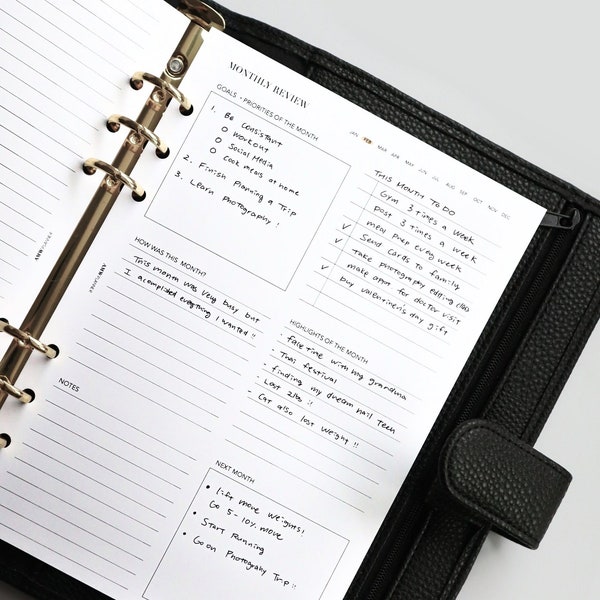 MONTHLY REVIEW
GOALS + PRIORITIES OF THE MONTH
1. Be consistant
O workout
O Social Media
O Cook meals at home
2. Finish Planning a Trip
3. Learn Photography!
JAN FEB MAR APR MAY JUN JUL AUG SEP OCT NOV DEC
THIS MONTH TO DO
Gym 3 times a week
post 3 times a week
meal prep every week
✓ Send Cards to family
✓ take photography editing class
✓ make appt for doctor visit
buy valentines's day gift
HOW WAS THIS MONTH?
This month was very busy but
I acomplished everything I wanted!!
HIGHLIGHTS OF THE MONTH
- facetime with my grandma
- Thai festival
- finding my dream nail Tech
- Lost 2lbs!!
- Cat also lost weight!!
NOTES
NEXT MONTH
• lift more weights!
Go 5-10% more
• Start Running
• Go on Photograhy Trip!!